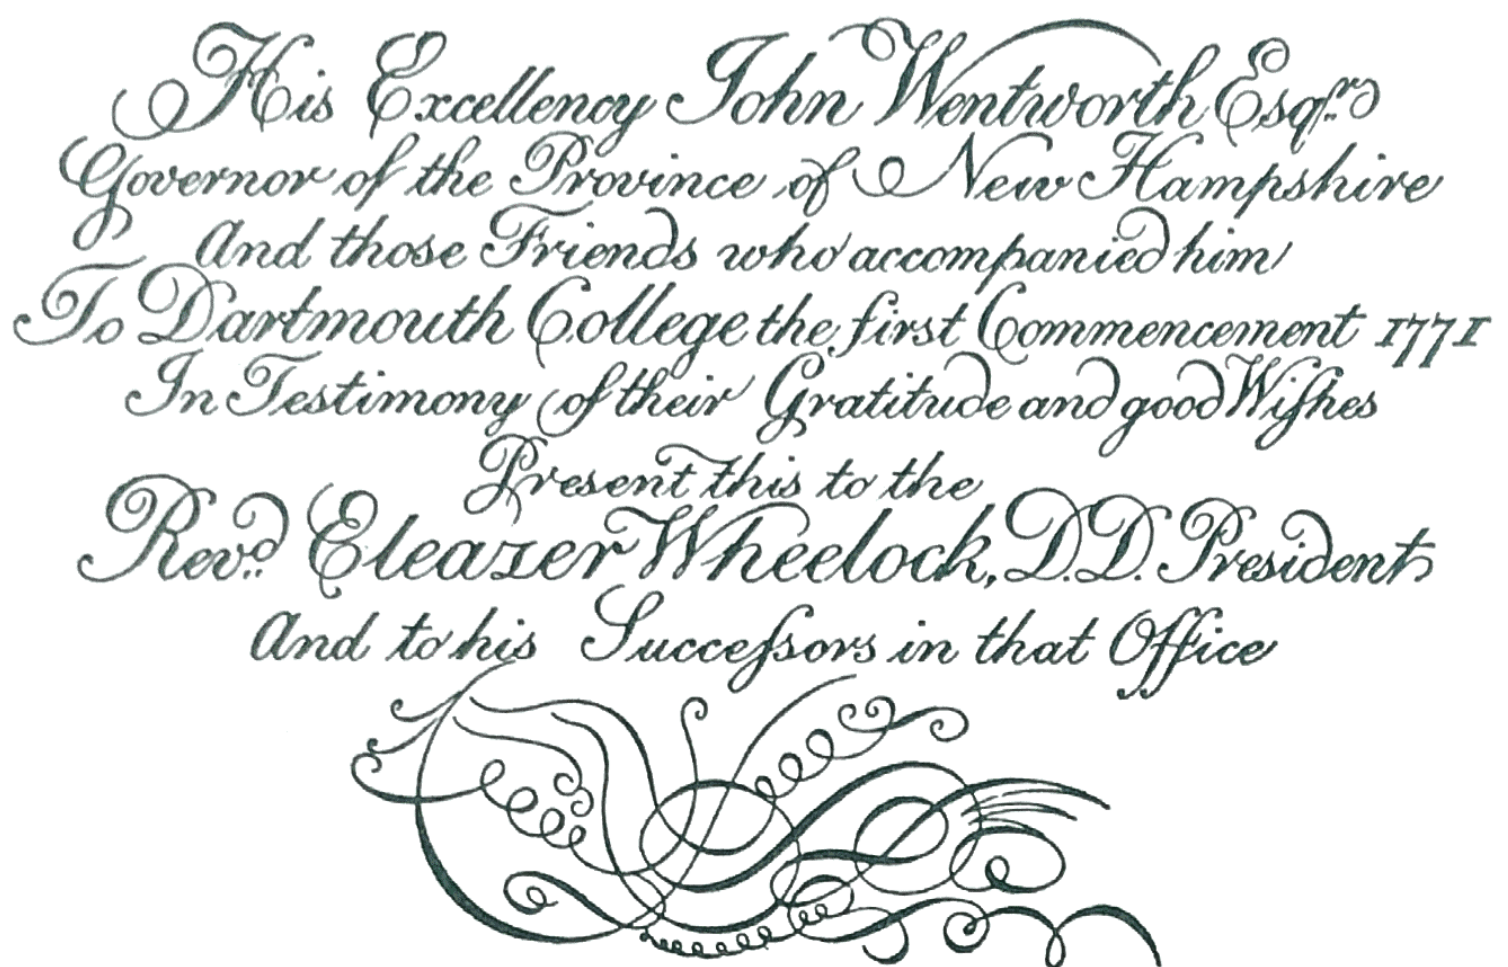 His Excellency John Wentworth Esqʳᵉ
Governor of the Province of New Hampshire
And those Friends who accompanied him
To Dartmouth College the first Commencement 1771
In Testimony of their Gratitude and good Wiſhes
Present this to the
Revᵈ. Eleazer Wheelock, D.D. President
And to his Succeſsors in that Office